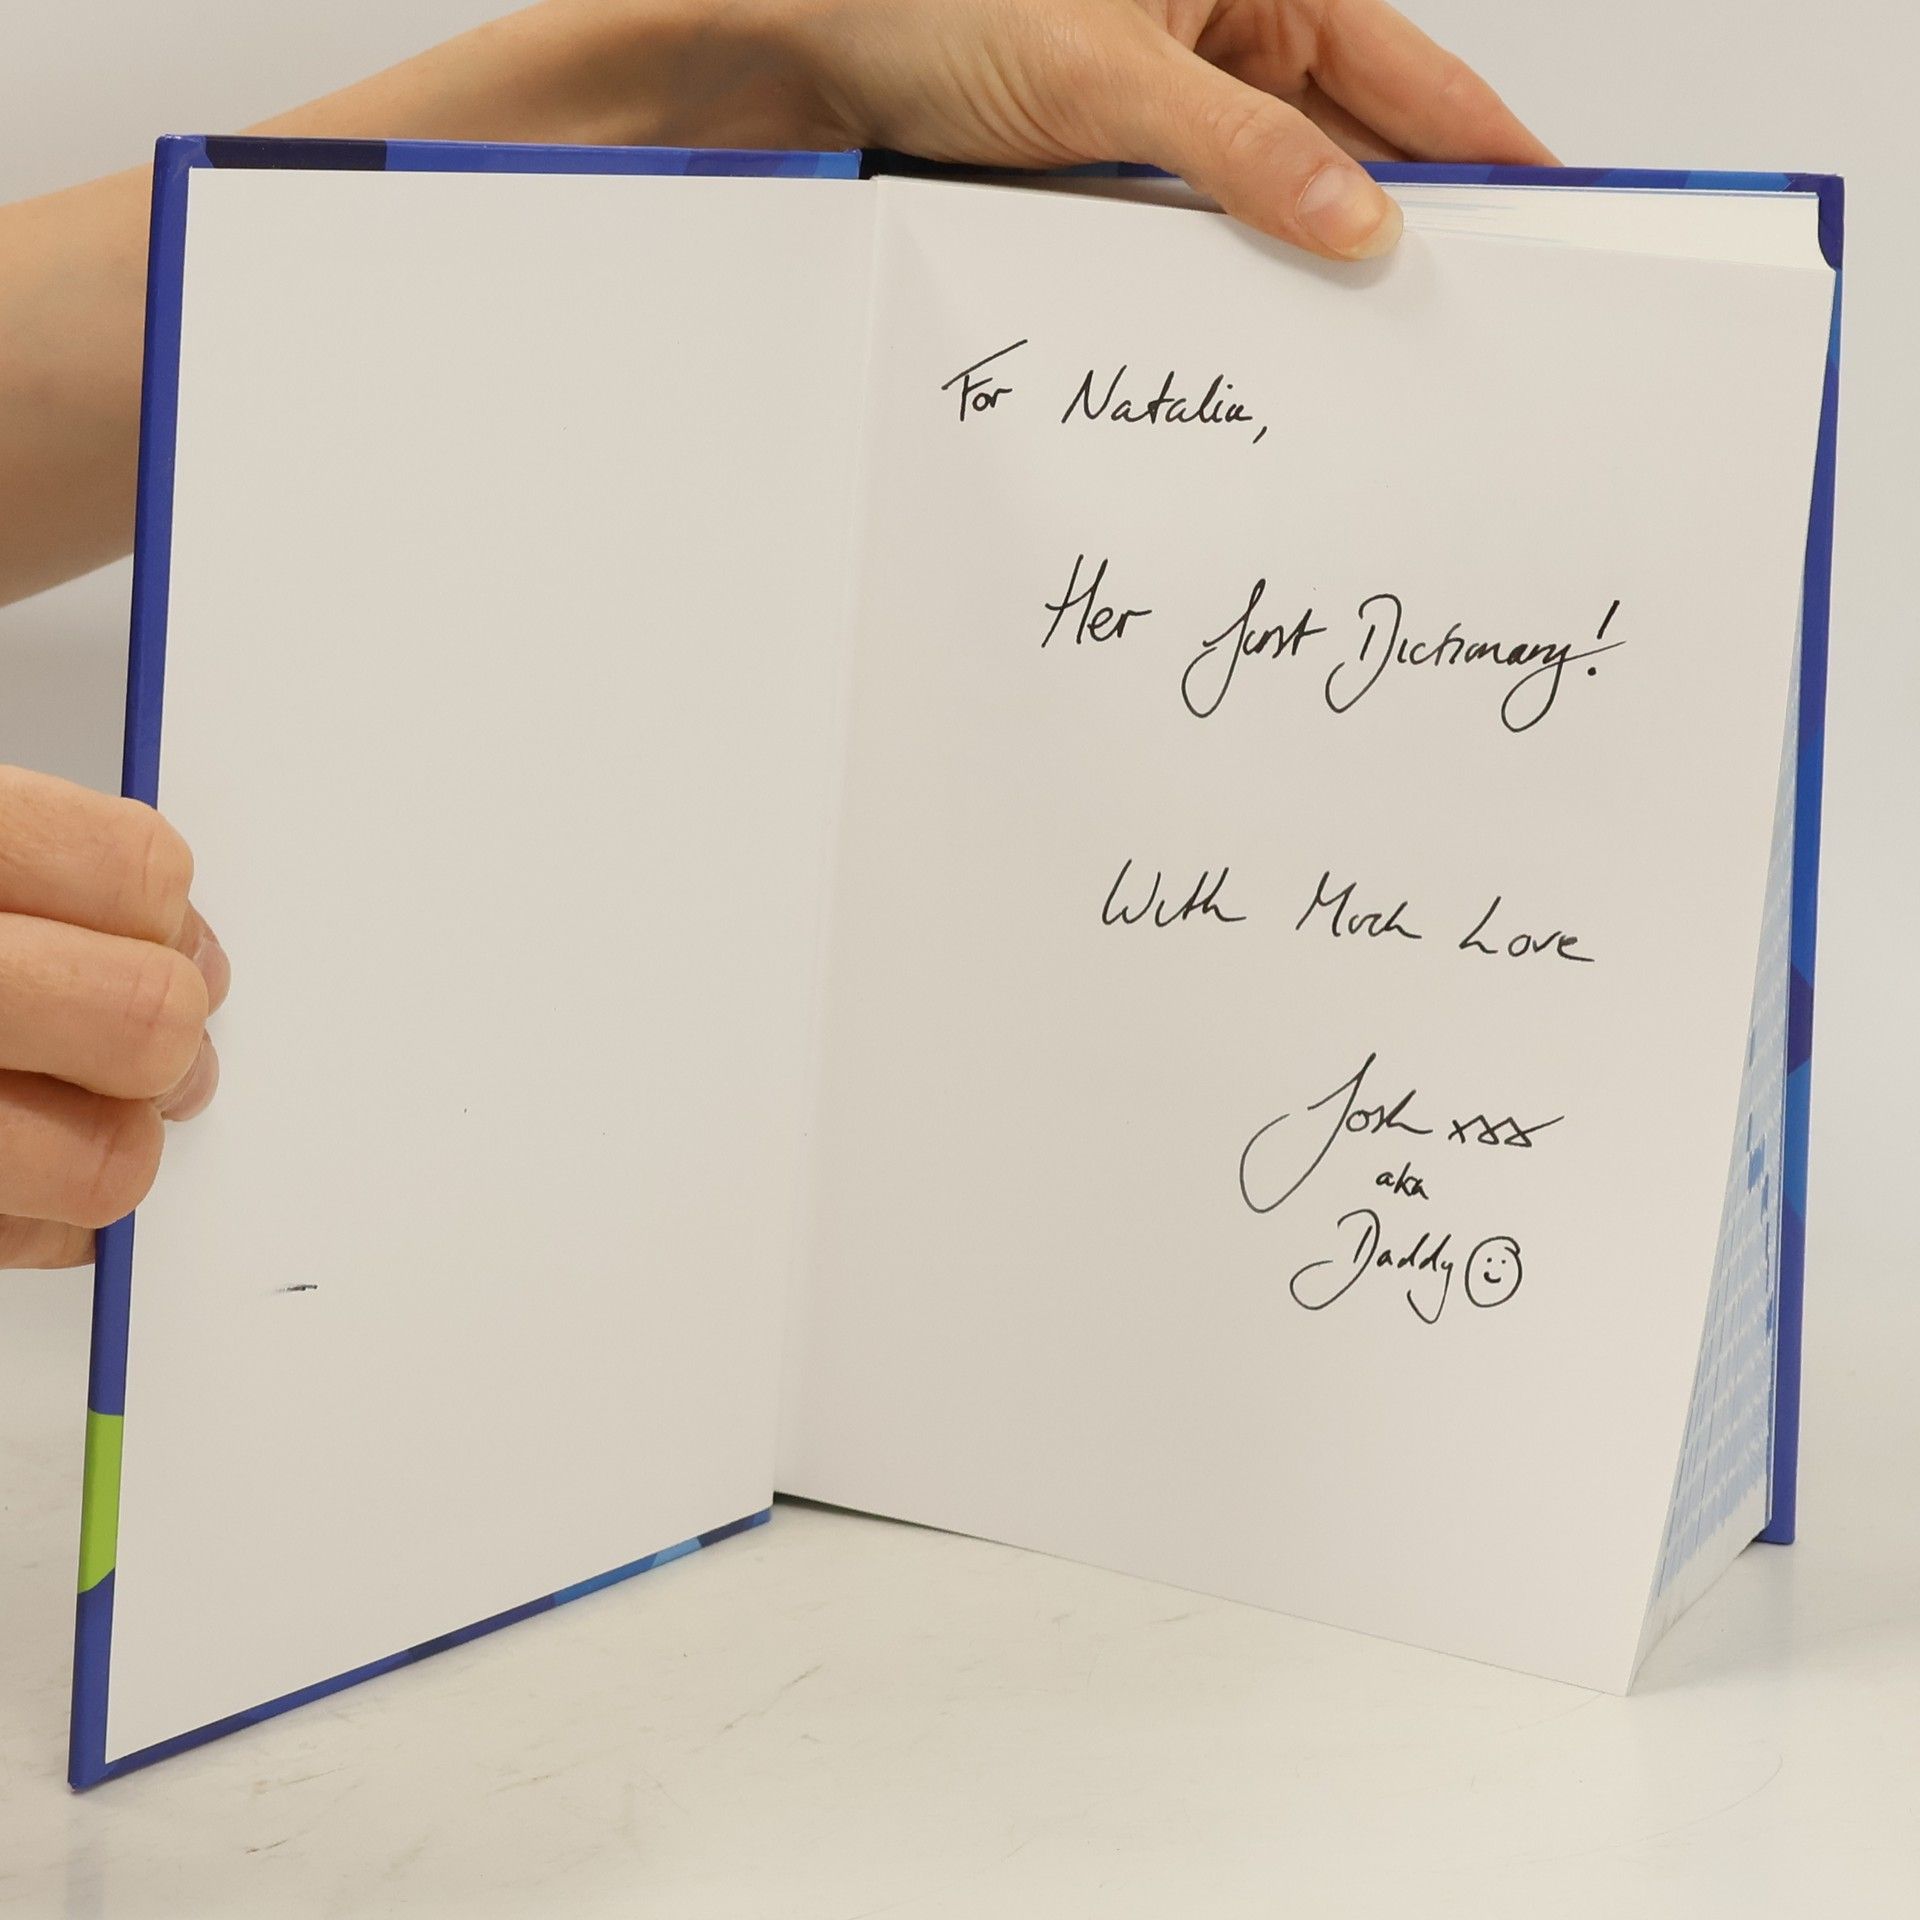 For Natalia,
Her first Dictionary!
With Much Love
Josh xxx
aka
Daddy